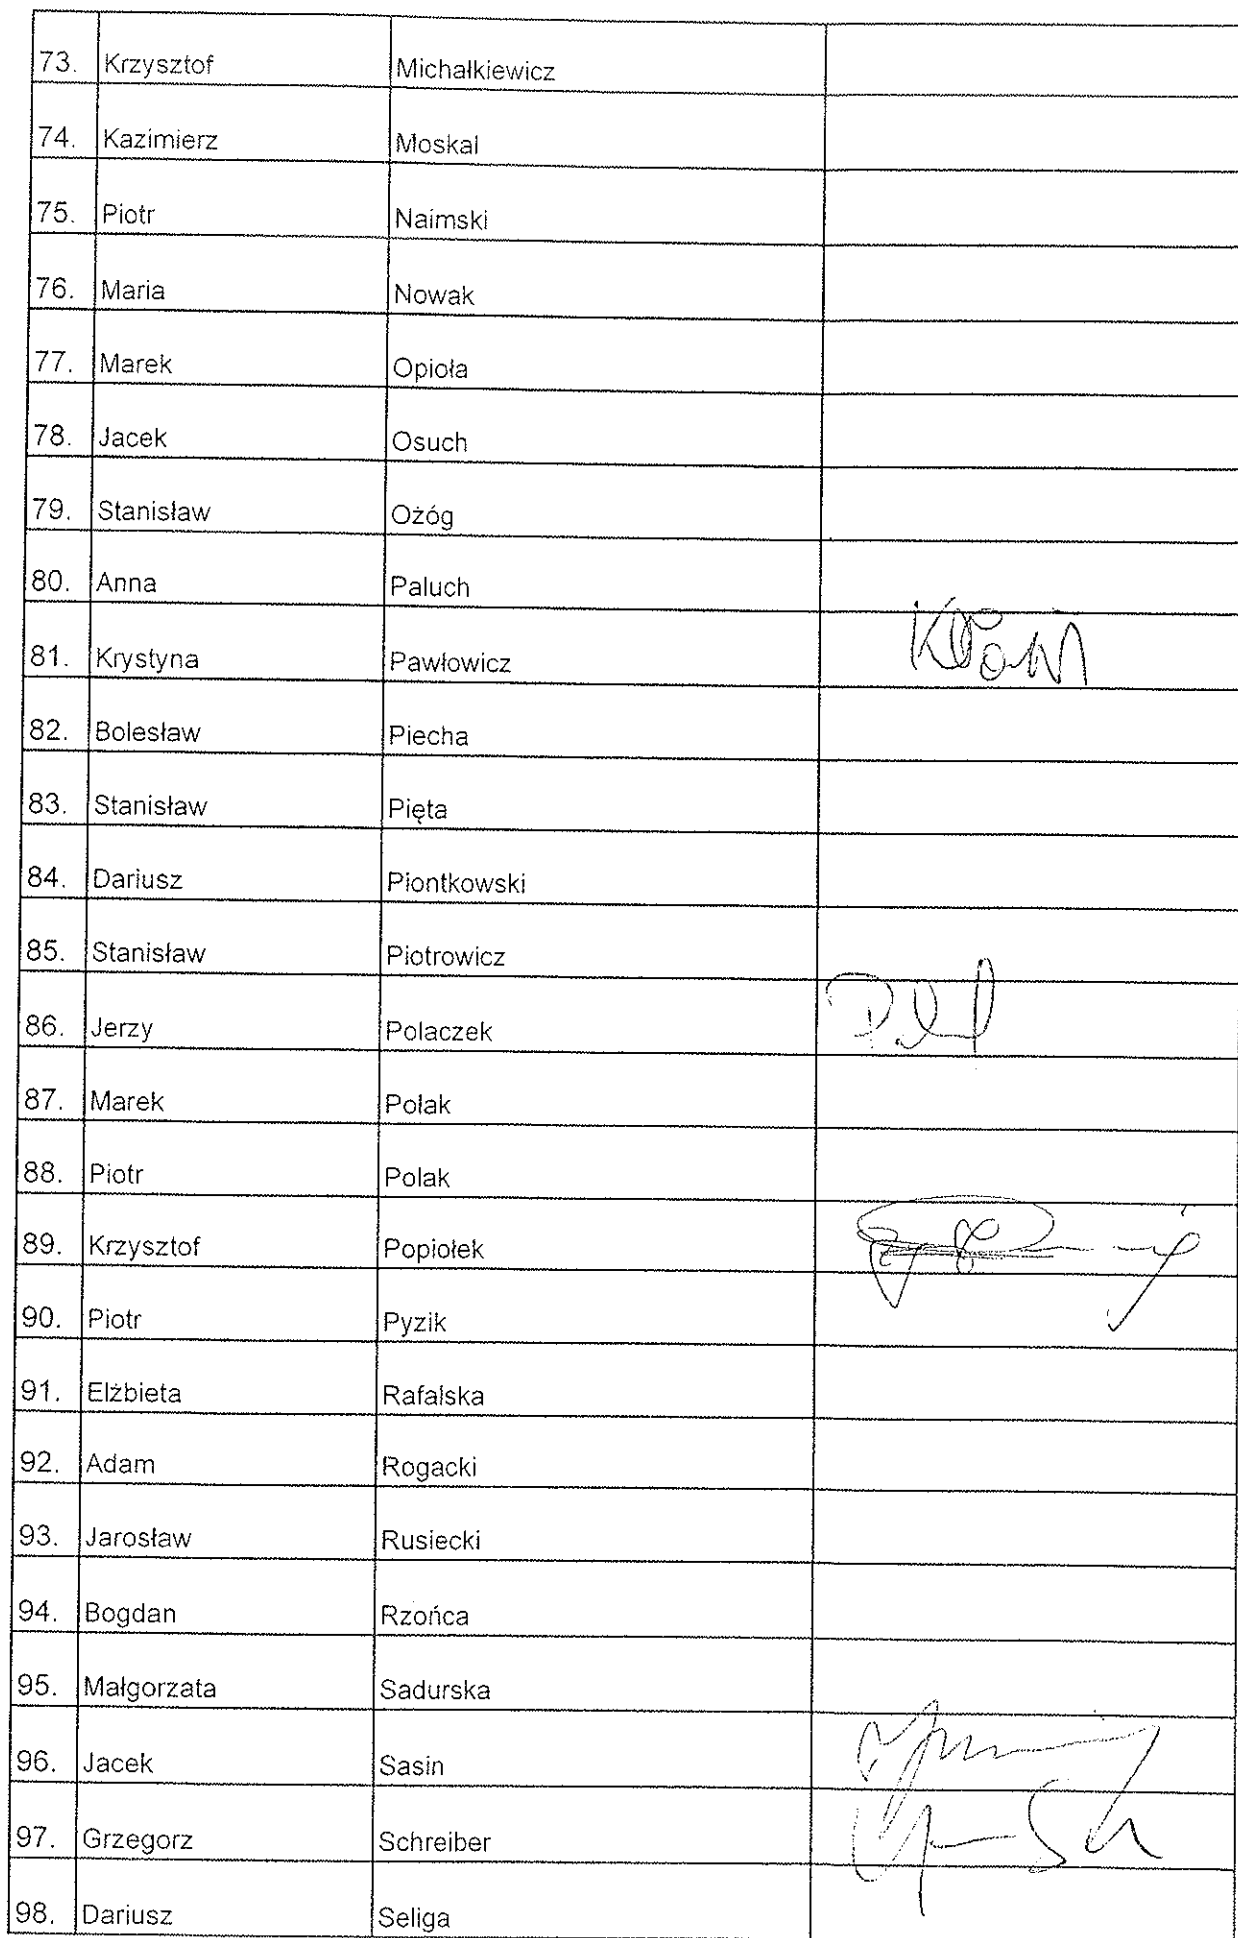 73. Krzysztof Michałkiewicz
74. Kazimierz Moskal
75. Piotr Naimski
76. Maria Nowak
77. Marek Opioła
78. Jacek Osuch
79. Stanisław Ożóg
80. Anna Paluch
81. Krystyna Pawłowicz
82. Bolesław Piecha
83. Stanisław Pięta
84. Dariusz Piontkowski
85. Stanisław Piotrowicz
86. Jerzy Polaczek
87. Marek Polak
88. Piotr Polak
89. Krzysztof Popiołek
90. Piotr Pyzik
91. Elżbieta Rafalska
92. Adam Rogacki
93. Jarosław Rusiecki
94. Bogdan Rzońca
95. Małgorzata Sadurska
96. Jacek Sasin
97. Grzegorz Schreiber
98. Dariusz Seliga